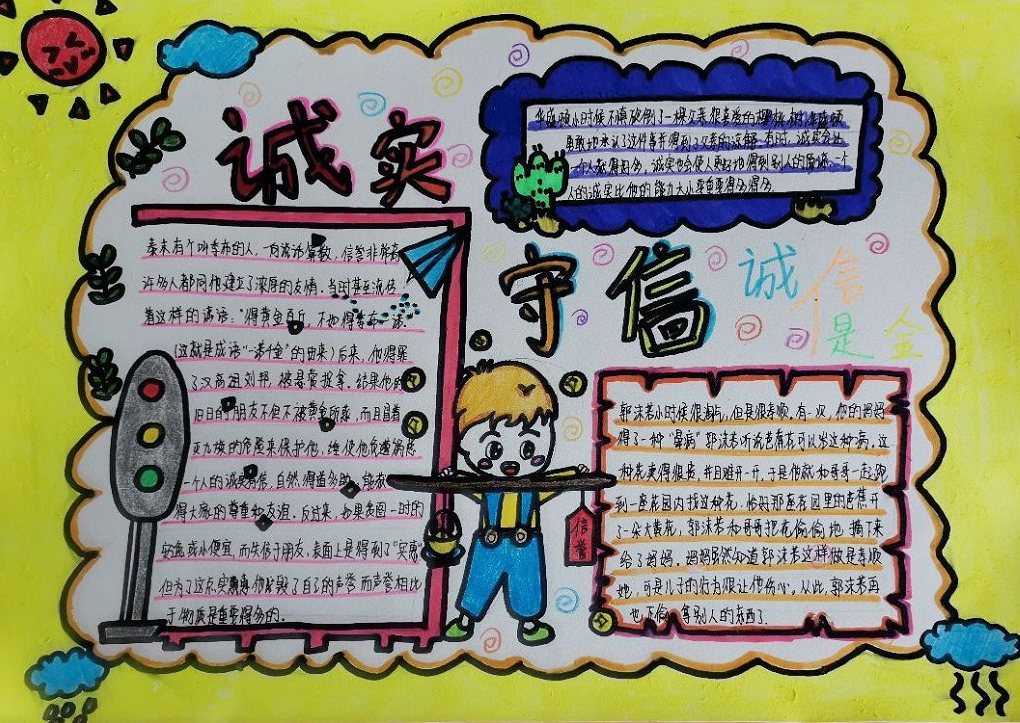 诚实
华盛顿小时候不慎砍倒了一棵父亲很喜爱的樱桃树,华盛顿
勇敢地承认了这件事并得到了父亲的谅解.有时,诚实会让
一个人赢得好多,诚实也会使人更好地得到别人的
一个
人的诚实比他的能力大小要重要得多得多.
秦末有个叫季布的人,一向说话算数,信誉非常高
许多人都同他建立了浓厚的友情.当时甚至流传
着这样的谚语:"得黄金百斤,不如得季布一诺."
(这就是成语"一诺千金"的由来)后来,他得罪
了汉高祖刘邦,被悬赏捉拿.结果他的
旧日的朋友不但不被黄金所惑,而且冒着
灭九族的危险来保护他,终使他免遭祸殃
一个人的诚实有信,自然得道多助,能获
得大家的尊重和友谊.反过来,如果贪图一时的
安逸或小便宜,而失信于朋友,表面上是得到了"实惠"
但为了这点实惠他毁了自己的声誉而声誉相比
于物质是重要得多的.
守信
诚信
是金
信誉
郭沫若小时候很淘气,但是很孝顺.有一次,他的妈妈
得了一种"晕病"郭沫若听说芭蕉花可以治这种病,这
种花卖得很贵,并且难开一开,于是他就和哥哥一起跑
到一座花园内找这种花.恰好那座花园里的芭蕉开
了一朵大黄花,郭沫若和哥哥把花偷偷地摘下来
给了妈妈.妈妈虽然知道郭沫若这样做是孝顺
她,可是儿子的行为很让他伤心.从此,郭沫若再
也不偷拿别人的东西了.